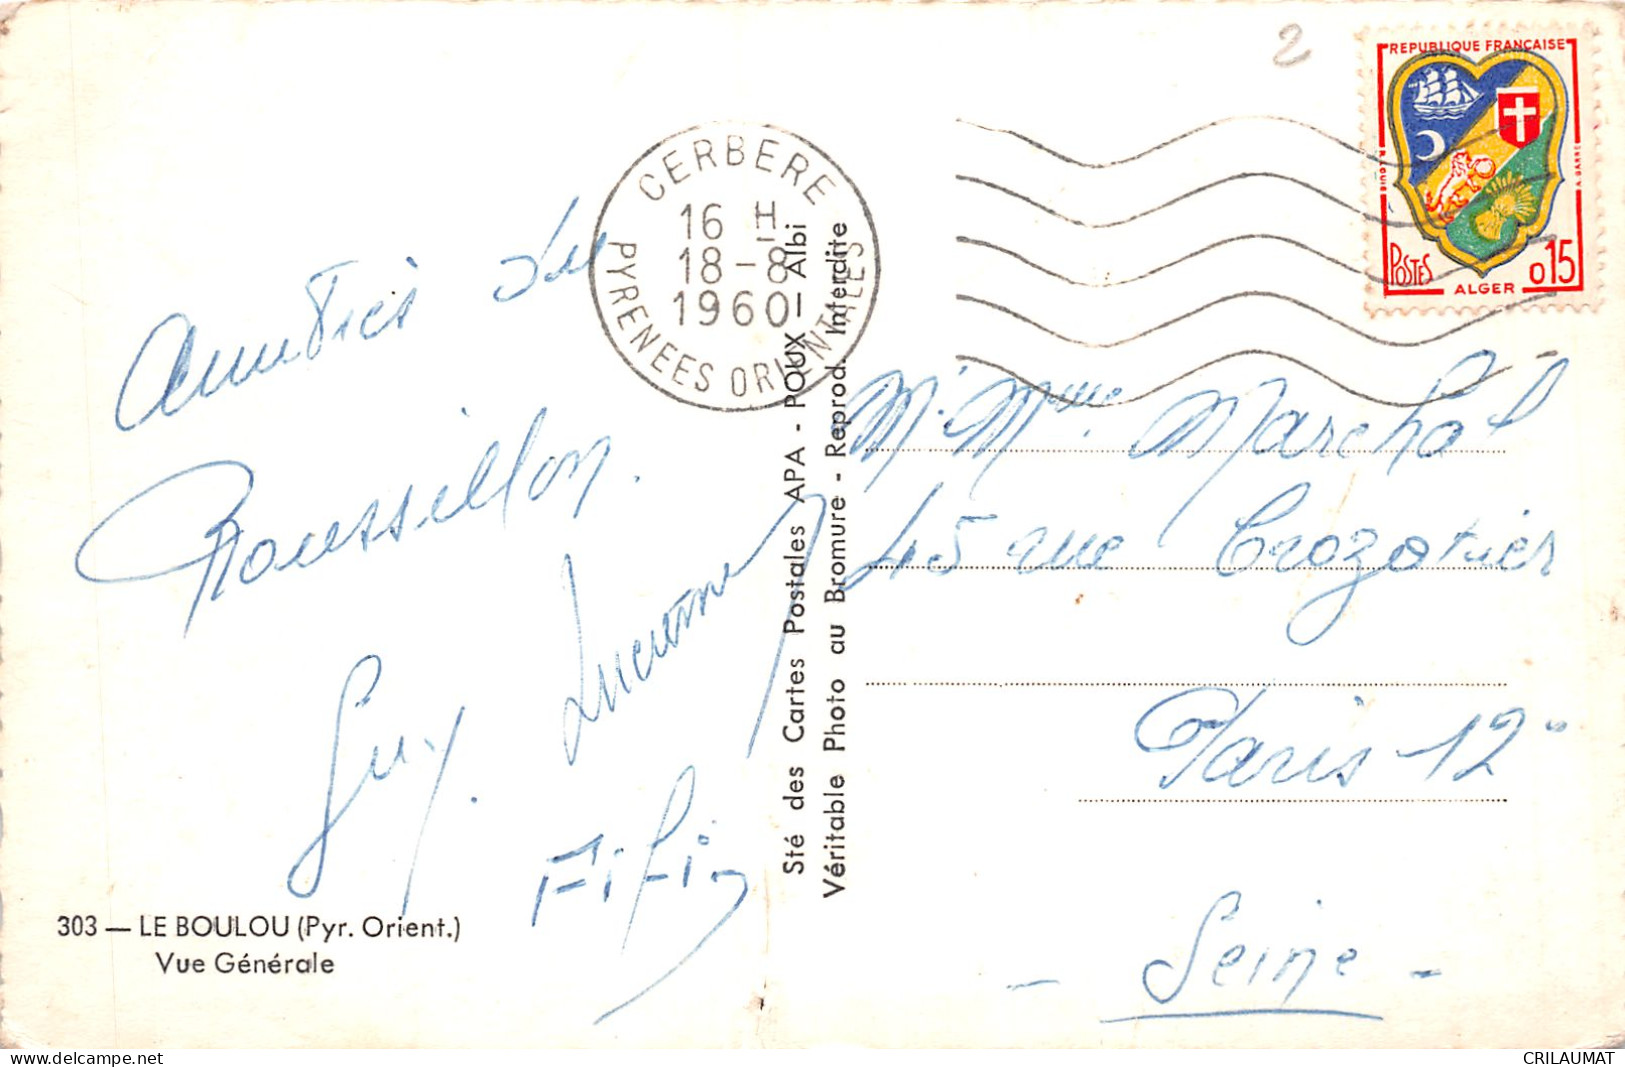 2
REPUBLIQUE FRANÇAISE
POSTES
ALGER
0,15
CERBERE
16 H
18-8
1960
PYRENEES ORIENTALES
Amitiés du
Roussillon.
Guy. Lucienne
Fifi
303 — LE BOULOU (Pyr. Orient.)
Vue Générale
Sté des Cartes Postales APA - POUX - Albi
Véritable Photo au Bromure - Reprod. Interdite
Mr Mme Marchal
45 rue Crozatier
Paris 12e
- Seine -
CRILAUMAT